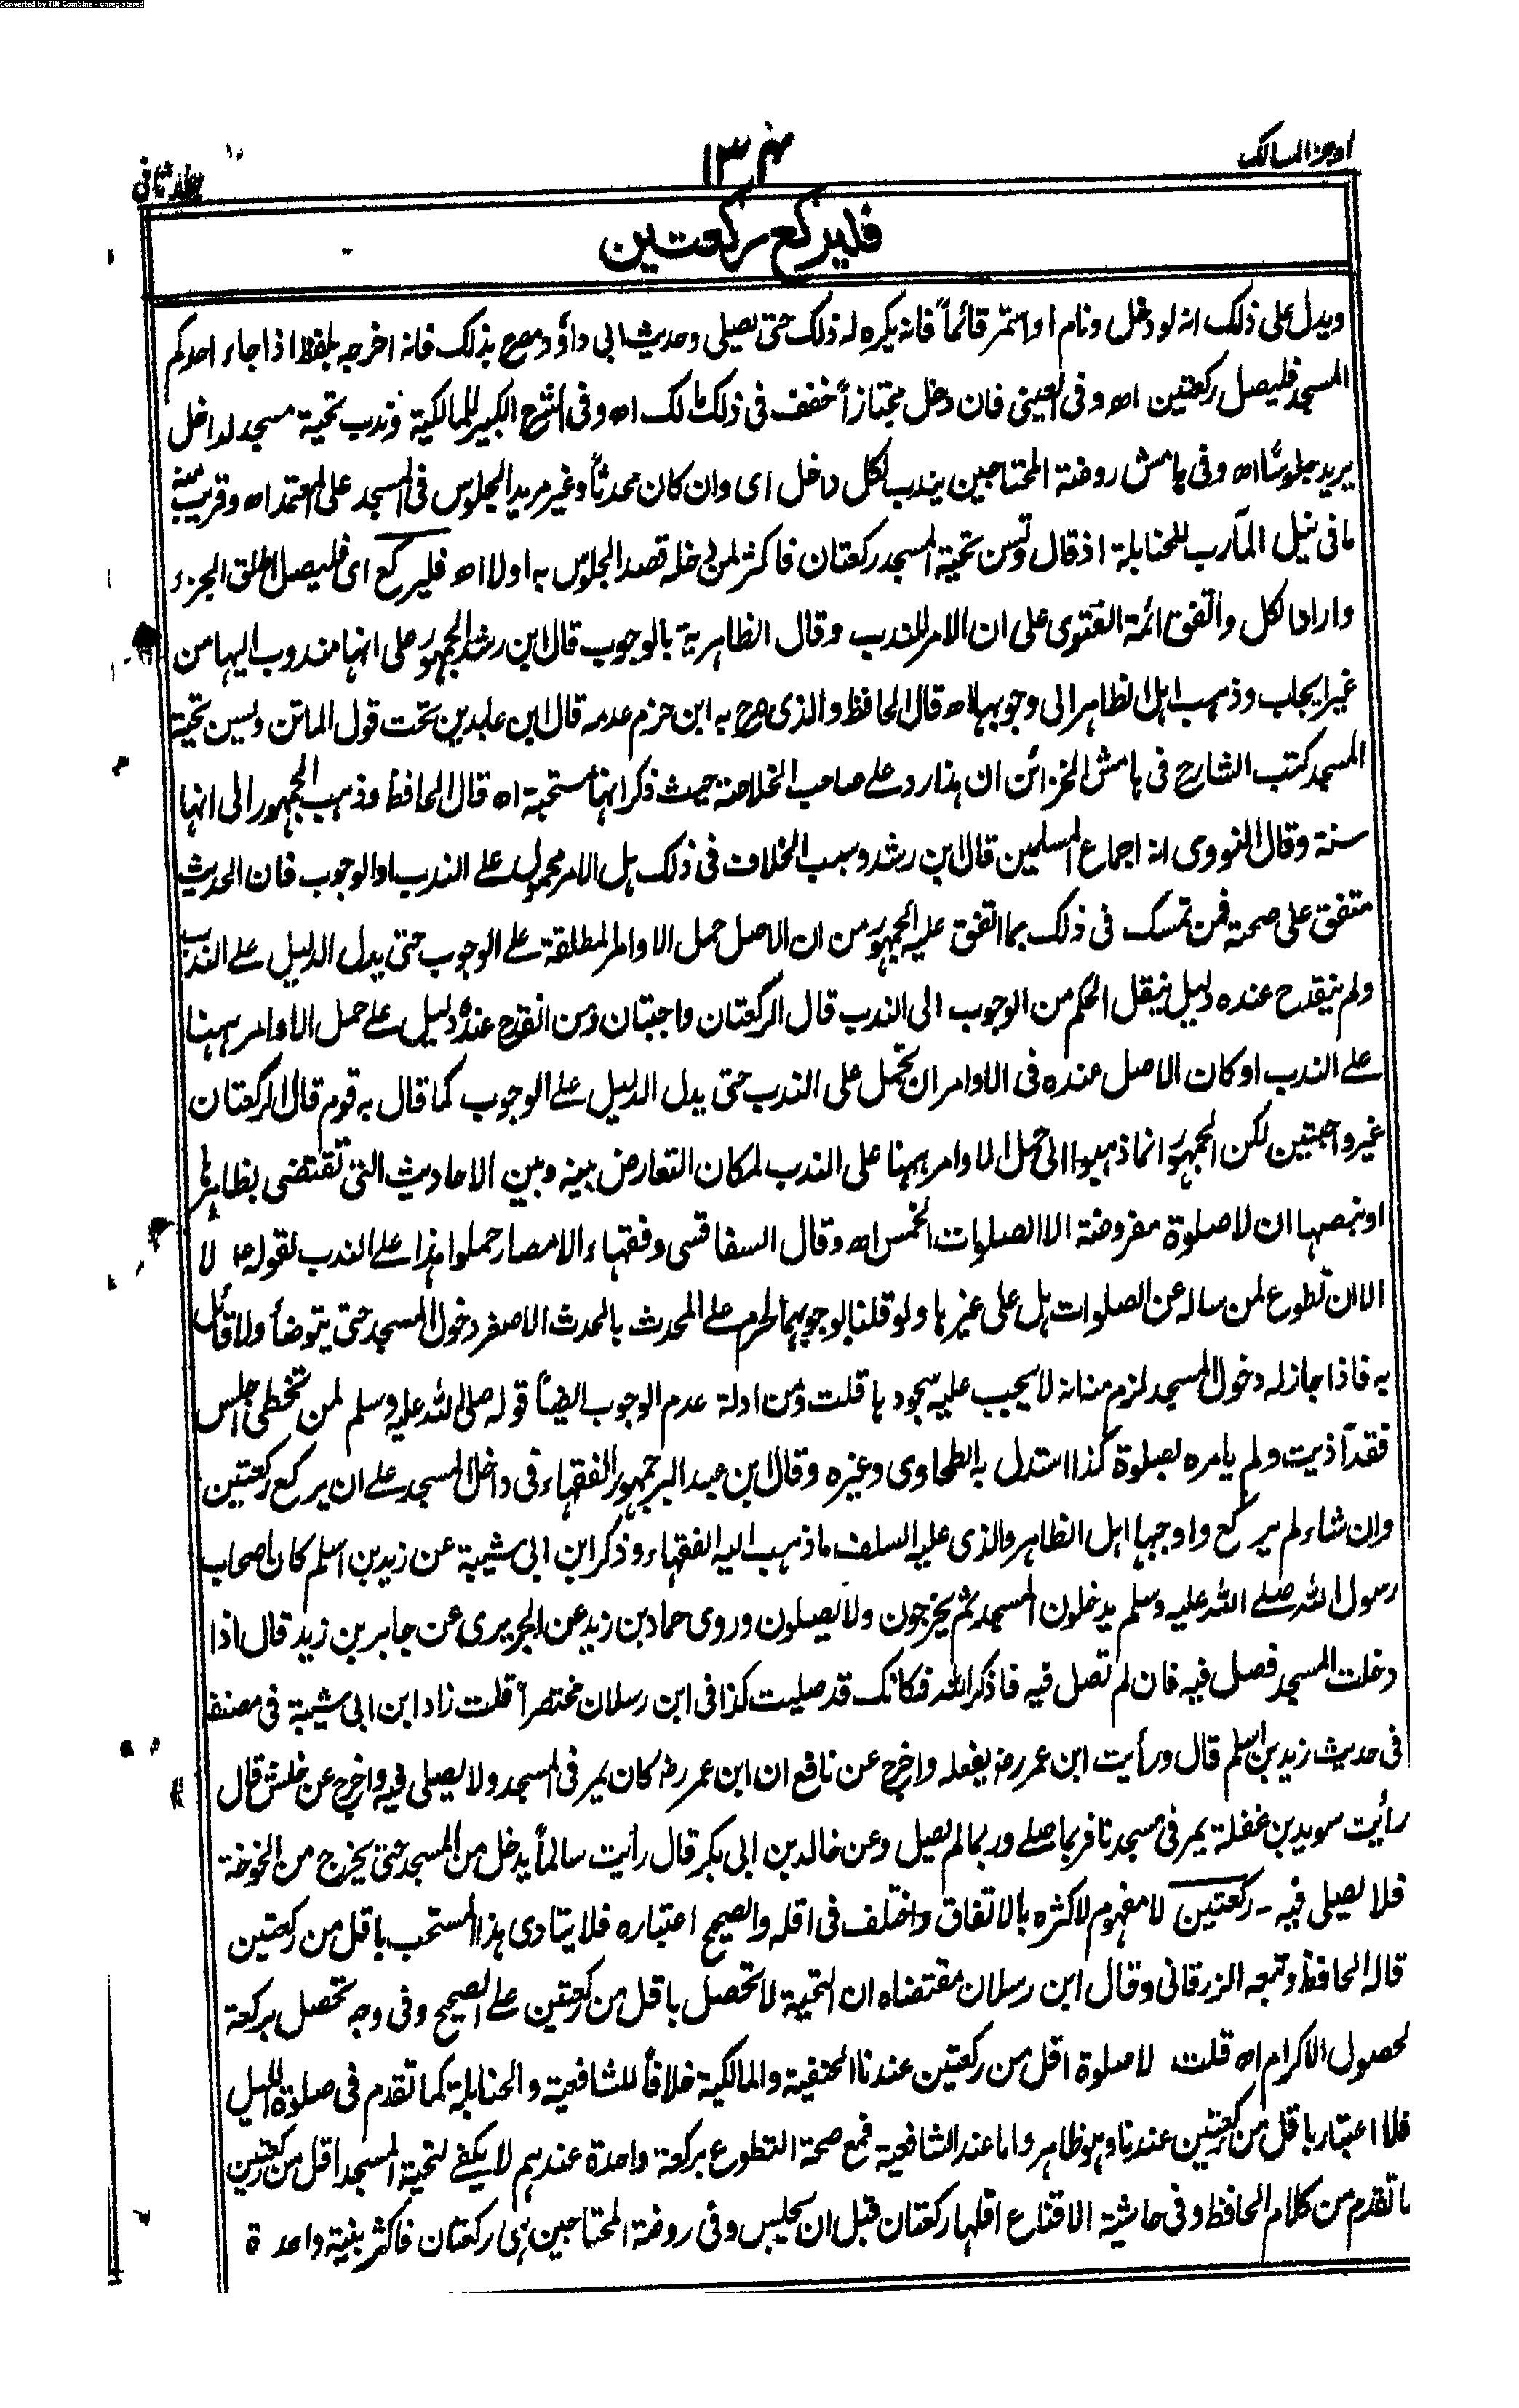 Converted by Tiff Combine - unregistered
اوجز المسالك
١٣٤
جلد ثانى
فليركع ركعتين
ويدل على ذلك انه لو دخل ونام او استمر قائماً فانه يكره له ذلك حتى يصلى وحديث ابى داؤد مصرح بذلك فانه اخرجه بلفظ اذا جاء احدكم
المسجد فليصل ركعتين اھ وفى العينى فان دخل مجتازاً خفف فى ذلك مالك اھ وفى الشرح الكبير للمالكية وندب تحية مسجد لداخل
يريد جلوسًا اھ وفى هامش روضة المحتاجين يندب لكل داخل اى وان كان محدثًا وغير مريد الجلوس فى المسجد على المعتمد اھ وقريب منه
ما فى نيل المآرب للحنابلة اذ قال وتسن تحية المسجد ركعتان فاكثر لمن دخله قصد الجلوس به اولا اھ فليركع اى فليصل اطلق الجزء
واراد الكل واتفق ائمة الفتوى على ان الامر للندب وقال الظاهرية بالوجوب قال ابن رشد الجمهور على انها مندوب اليها من
غير ايجاب وذهب اهل الظاهر الى وجوبها اھ قال الحافظ والذى صرح به ابن حزم عدمه قال ابن عابدين تحت قول الماتن ويسن تحية
المسجد كتب الشارح فى هامش الخزائن ان هذا رد على صاحب الخلاصة حيث ذكر انها مستحبة اھ قال الحافظ وذهب الجمهور الى انها
سنة وقال النووى انه اجماع المسلمين قال ابن رشد وسبب الخلاف فى ذلك هل الامر محمول على الندب او الوجوب فان الحديث
متفق على صحته فمن تمسك فى ذلك بما اتفق عليه الجمهور من ان الاصل حمل الاوامر المطلقة على الوجوب حتى يدل الدليل على الندب
ولم ينقدح عنده دليل ينقل الحكم من الوجوب الى الندب قال الركعتان واجبتان ومن انقدح عنده دليل على حمل الاوامر ههنا
على الندب او كان الاصل عنده فى الاوامر ان تحمل على الندب حتى يدل الدليل على الوجوب كما قال به قوم قال الركعتان
غير واجبتين لكن الجمهور انما ذهبوا الى حمل الاوامر ههنا على الندب لمكان التعارض بينه وبين الاحاديث التى تقتضى بظاهرها
او بنصها ان لا صلوة مفروضة الا الصلوات الخمس اھ وقال السفاقسى وفقهاء الامصار حملوا هذا على الندب لقوله ؑ لا
الا ان تطوع لمن ساله عن الصلوات هل على غيرها ولو قلنا بوجوبهما لحرم على المحدث بالحدث الاصغر دخول المسجد حتى يتوضأ ولا قائل
به فاذا جاز له دخول المسجد لزم منه انه لا يجب عليه سجودها قلت ومن ادلة عدم الوجوب ايضاً قوله صلى الله عليه وسلم لمن تخطى اجلس
فقد آذيت ولم يامره بصلوة كذا استدل به الطحاوى وغيره وقال ابن عبد البر جمهور الفقهاء فى داخل المسجد على ان يركع ركعتين
وان شاء لم يركع واوجبها اهل الظاهر والذى عليه السلف ما ذهب اليه الفقهاء وذكر ابن ابى شيبة عن زيد بن اسلم كان اصحاب
رسول الله صلى الله عليه وسلم يدخلون المسجد ثم يخرجون ولا يصلون وروى حماد بن زيد عن الجريرى عن جابر بن زيد قال اذا
دخلت المسجد فصل فيه فان لم تصل فيه فاذكر الله فكانك قد صليت كذا فى ابن رسلان مختصراً قلت زاد ابن ابى شيبة فى مصنفه
فى حديث زيد بن اسلم قال ورأيت ابن عمر رض يفعله واخرج عن نافع ان ابن عمر رض كان يمر فى المسجد ولا يصلى فيه واخرج عن حنش قال
رأيت سويد بن غفلة يمر فى مسجدنا فربما صلى وربما لم يصل وعن خالد بن ابى بكر قال رأيت سالماً يدخل من المسجد حتى يخرج من الخوخة
فلا يصلى فيه - ركعتين لا مفهوم لاكثره بالاتفاق واختلف فى اقله والصحيح اعتباره فلا يتادى هذا المستحب باقل من ركعتين
قاله الحافظ وتبعه الزرقانى وقال ابن رسلان مقتضاه ان التحية لا تحصل باقل من ركعتين على الصحيح وفى وجه تحصل بركعة
لحصول الاكرام اھ قلت لا صلوة اقل من ركعتين عندنا الحنفية والمالكية خلافاً للشافعية والحنابلة كما تقدم فى صلوة الليل
فلا اعتبار باقل من ركعتين عندنا وهو ظاهر واما عند الشافعية فمع صحة التطوع بركعة واحدة عندهم لا يكفى لتحية المسجد اقل من ركعتين
ما تقدم من كلام الحافظ وفى حاشية الاقناع اقلها ركعتان قبل ان يجلس وفى روضة المحتاجين هى ركعتان فاكثر بنية واحدة